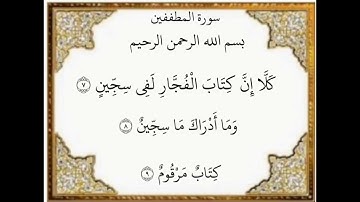 سورة المطففين
بسم الله الرحمن الرحيم
كَلَّا إِنَّ كِتَابَ الْفُجَّارِ لَفِي سِجِّينٍ ٧
وَمَا أَدْرَاكَ مَا سِجِّينٌ ٨
كِتَابٌ مَرْقُومٌ ٩